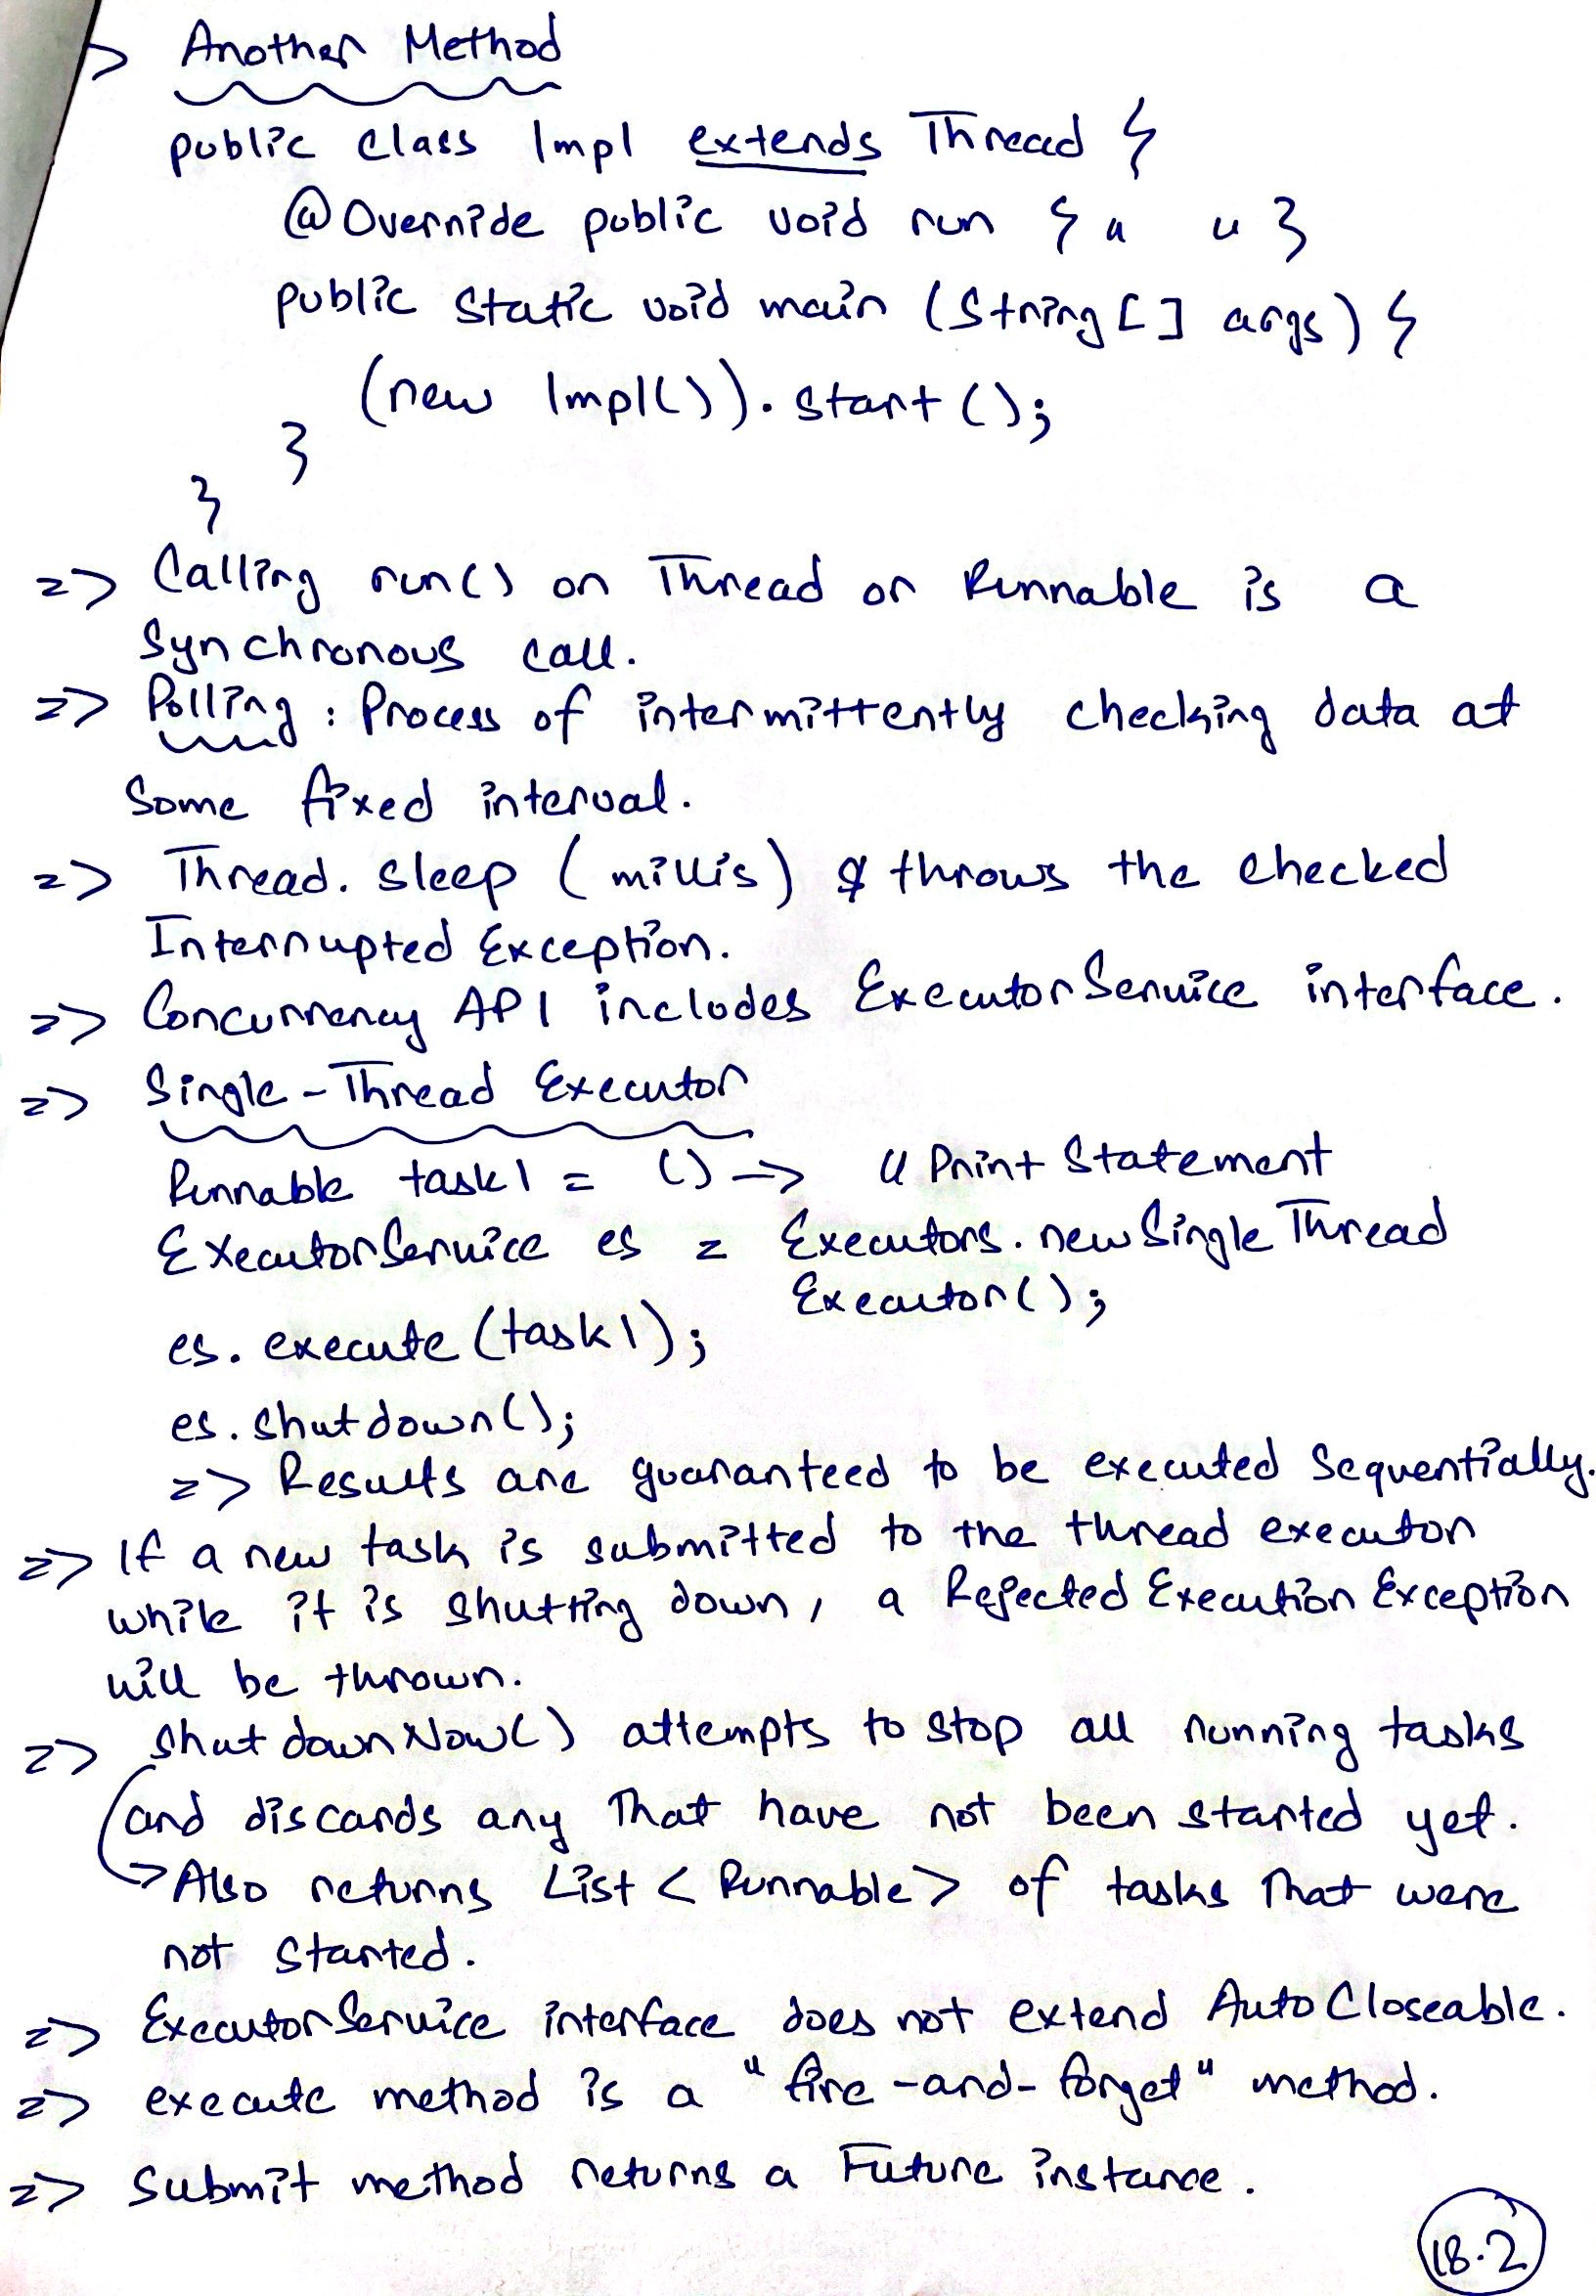 > Another Method
public class Impl extends Thread {
@Override public void run { " " }
public static void main (String[] args) {
(new Impl()).start();
}
}
=> Calling run() on Thread or Runnable is a
Synchronous call.
=> Polling : Process of intermittently checking data at
Some fixed interval.
=> Thread.sleep (millis) throws the checked
Interrupted Exception.
=> Concurrency API includes ExecutorService interface.
=> Single-Thread Executor
Runnable task1 = () -> " Print Statement
ExecutorService es = Executors.newSingleThread
Executor();
es.execute(task1);
es.shutdown();
=> Results are guaranteed to be executed sequentially.
=> If a new task is submitted to the thread executor
while it is shutting down, a RejectedExecutionException
will be thrown.
=> shutdownNow() attempts to stop all running tasks
and discards any that have not been started yet.
-> Also returns List<Runnable> of tasks that were
not started.
=> ExecutorService interface does not extend AutoCloseable.
=> execute method is a "fire-and-forget" method.
=> Submit method returns a Future instance.
18.2